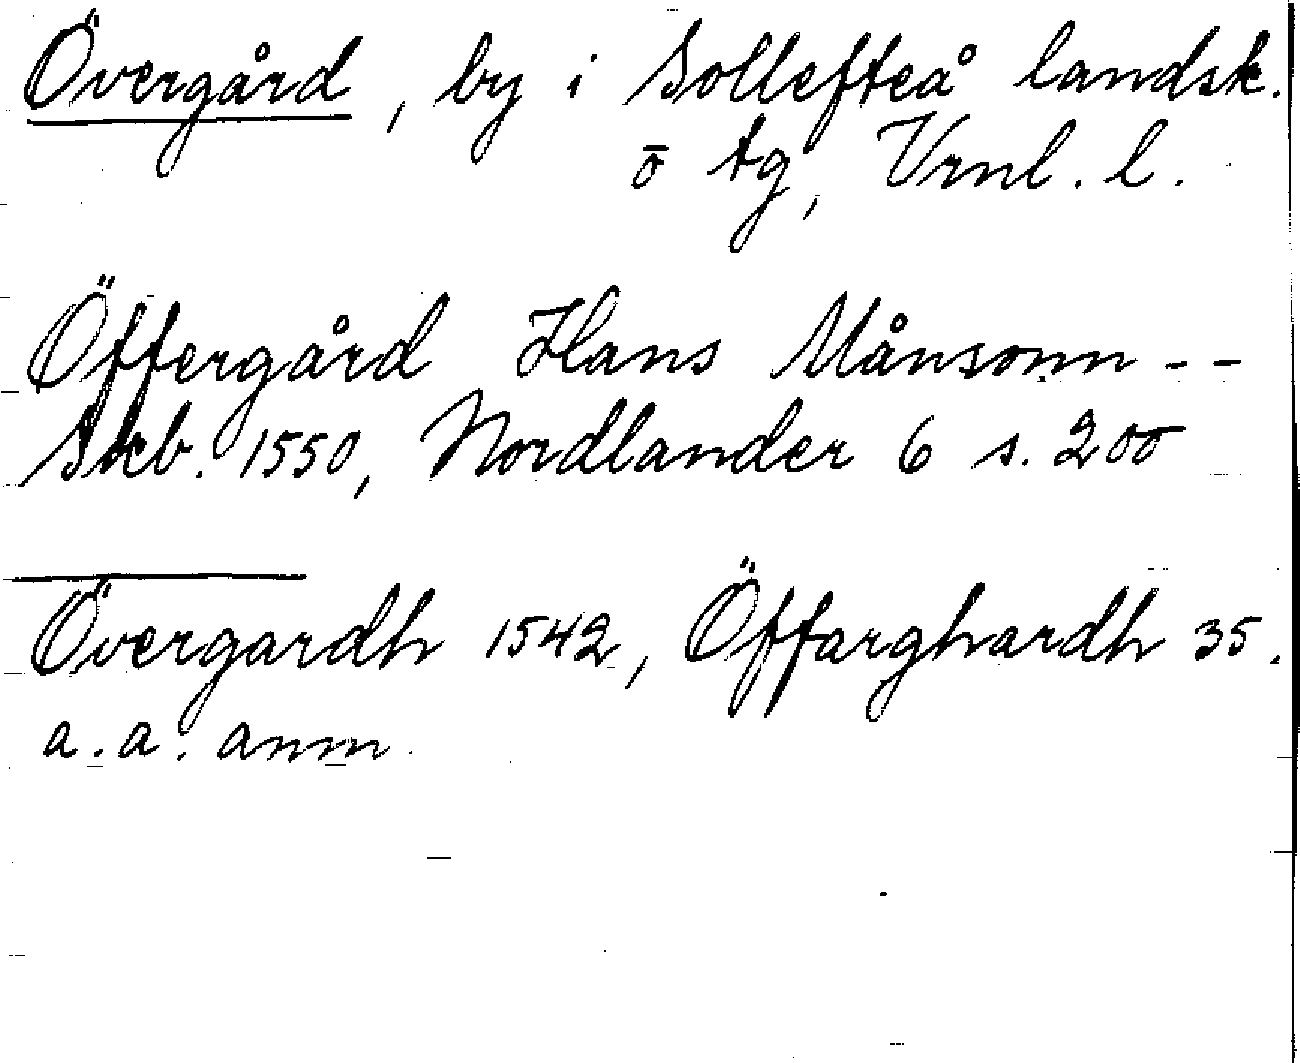 Övergård, by i Sollefteå landsk.
o tg, Vrnl. l.
Öffergård Hans Månsonn - -
Skb. 1550, Nordlander 6 s. 200
Övergardh 1542, Öffarghardh 35.
a. a. anm.